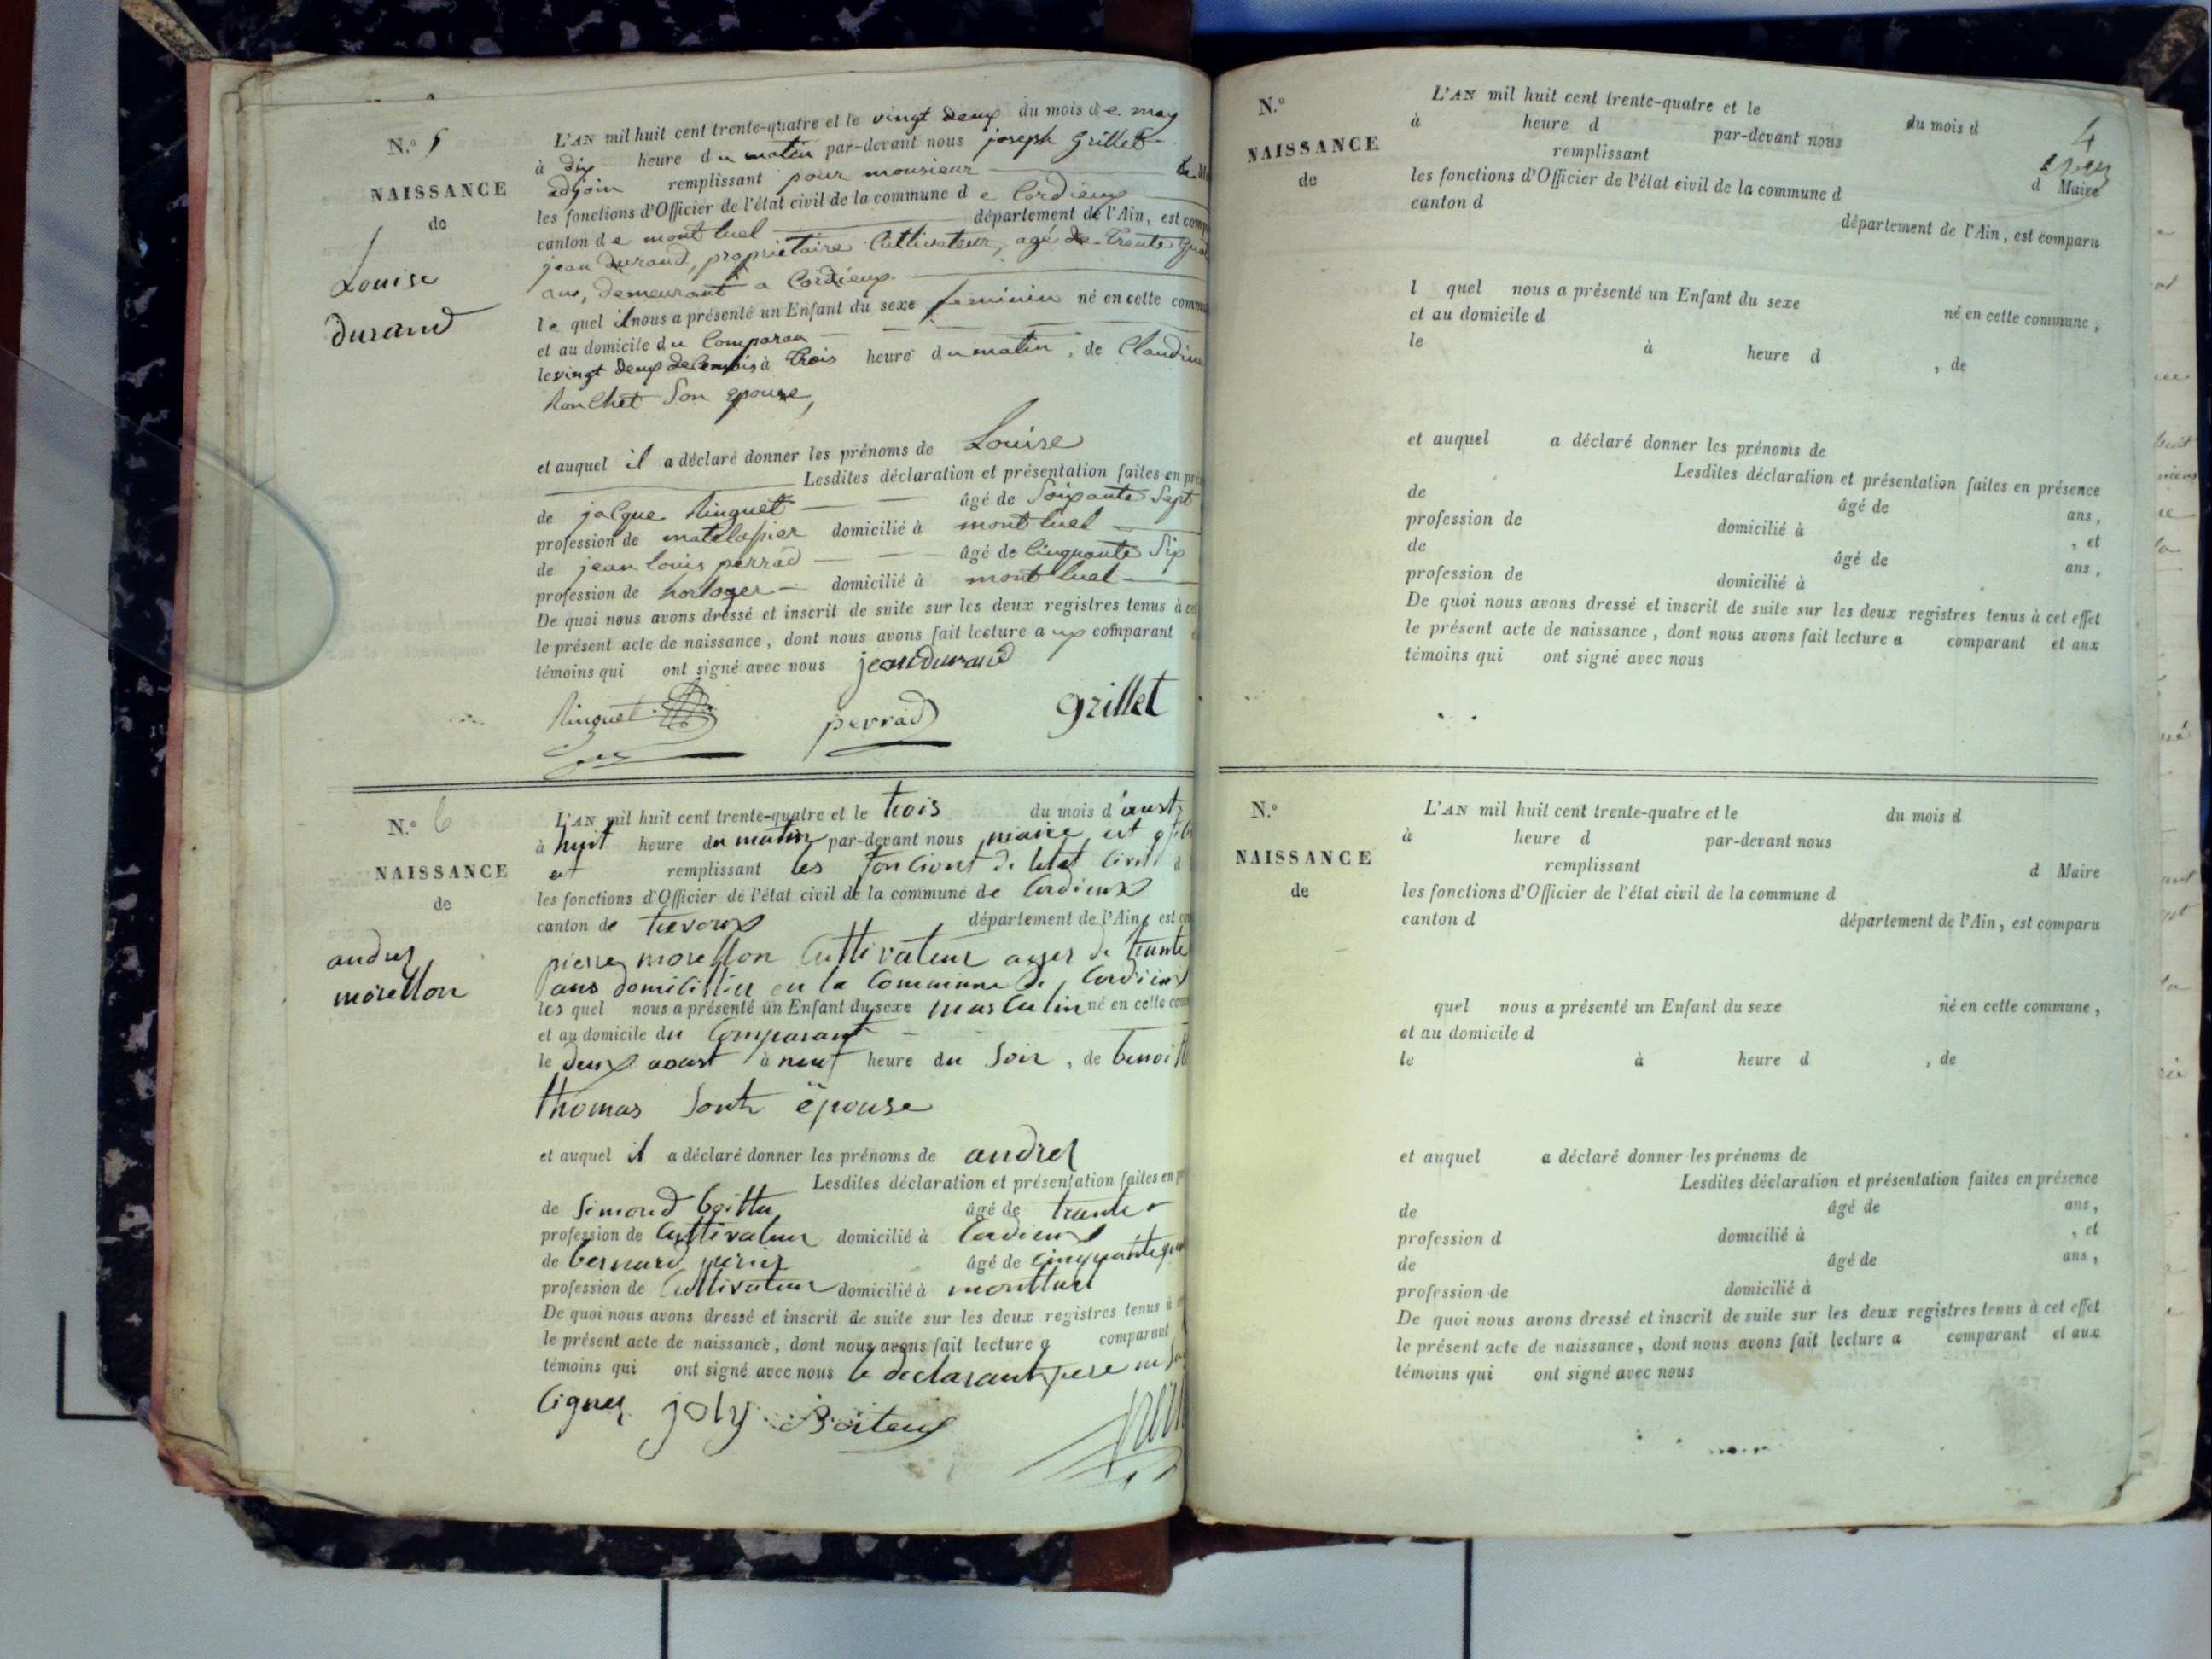 N.° 5
NAISSANCE
de
Louise
durand
L'AN mil huit cent trente-quatre et le vingt deux du mois de may
à dix heure du matin par-devant nous joseph grillet
adjoin remplissant pour monsieur
les fonctions d'Officier de l'état civil de la commune de Cordieux
canton de montluel département de l'Ain, est
jean durand, propriétaire Cultivateur, agé de trente
ans, demeurant a Cordieux.
le quel il nous a présenté un Enfant du sexe feminin né en cette
et au domicile du Comparan
le vingt deux de Ce mois à trois heure du matin, de
Ronchet Son epouse,
et auquel il a déclaré donner les prénoms de Louise
Lesdites déclaration et présentation faites en
de jacque Ringuet âgé de Soixante Sept
profession de matelassier domicilié à mont luel
de jean louis perrad âgé de Cinquante Six
profession de horloger domicilié à mont luel
De quoi nous avons dressé et inscrit de suite sur les deux registres tenus à
le présent acte de naissance, dont nous avons fait lecture aux comparant
témoins qui ont signé avec nous jean durand
Ringuet perrad grillet
N.° 6
NAISSANCE
de
andrez
morellon
L'AN mil huit cent trente-quatre et le trois du mois d'aust
à huit heure du matin par-devant nous maire et
et remplissant les fonctions de letat Civil
les fonctions d'Officier de l'état civil de la commune de Cordieux
canton de trevoux département de l'Ain, est
pierre morellon Cultivateur agger de trante
ans domicillier en la Commune de Cordieux
les quel nous a présenté un Enfant du sexe masculin né en cette
et au domicile du Comparant
le deux aoust à neuf heure du Soir, de benoit
thomas Sont épouse
et auquel il a déclaré donner les prénoms de andrez
Lesdites déclaration et présentation faites en
de Simond boittu âgé de trante
profession de Cultivateur domicilié à Cordieux
de bernard perier âgé de cinquante
profession de Cultivateur domicilié à montluel
De quoi nous avons dressé et inscrit de suite sur les deux registres tenus à
le présent acte de naissance, dont nous avons fait lecture a comparant
témoins qui ont signé avec nous le declarant pere ne
Cigner joly Boiteux
4
N.°
NAISSANCE
de
L'AN mil huit cent trente-quatre et le du mois d
à heure d par-devant nous
remplissant d Maire
les fonctions d'Officier de l'état civil de la commune d
canton d département de l'Ain, est comparu
l quel nous a présenté un Enfant du sexe né en cette commune,
et au domicile d
le à heure d , de
et auquel a déclaré donner les prénoms de
Lesdites déclaration et présentation faites en présence
de âgé de ans,
profession de domicilié à , et
de âgé de ans,
profession de domicilié à
De quoi nous avons dressé et inscrit de suite sur les deux registres tenus à cet effet
le présent acte de naissance, dont nous avons fait lecture a comparant et aux
témoins qui ont signé avec nous
N.°
NAISSANCE
de
L'AN mil huit cent trente-quatre et le du mois d
à heure d par-devant nous
remplissant d Maire
les fonctions d'Officier de l'état civil de la commune d
canton d département de l'Ain, est comparu
quel nous a présenté un Enfant du sexe né en cette commune,
et au domicile d
le à heure d , de
et auquel a déclaré donner les prénoms de
Lesdites déclaration et présentation faites en présence
de âgé de ans,
profession d domicilié à , et
de âgé de ans,
profession de domicilié à
De quoi nous avons dressé et inscrit de suite sur les deux registres tenus à cet effet
le présent acte de naissance, dont nous avons fait lecture a comparant et aux
témoins qui ont signé avec nous